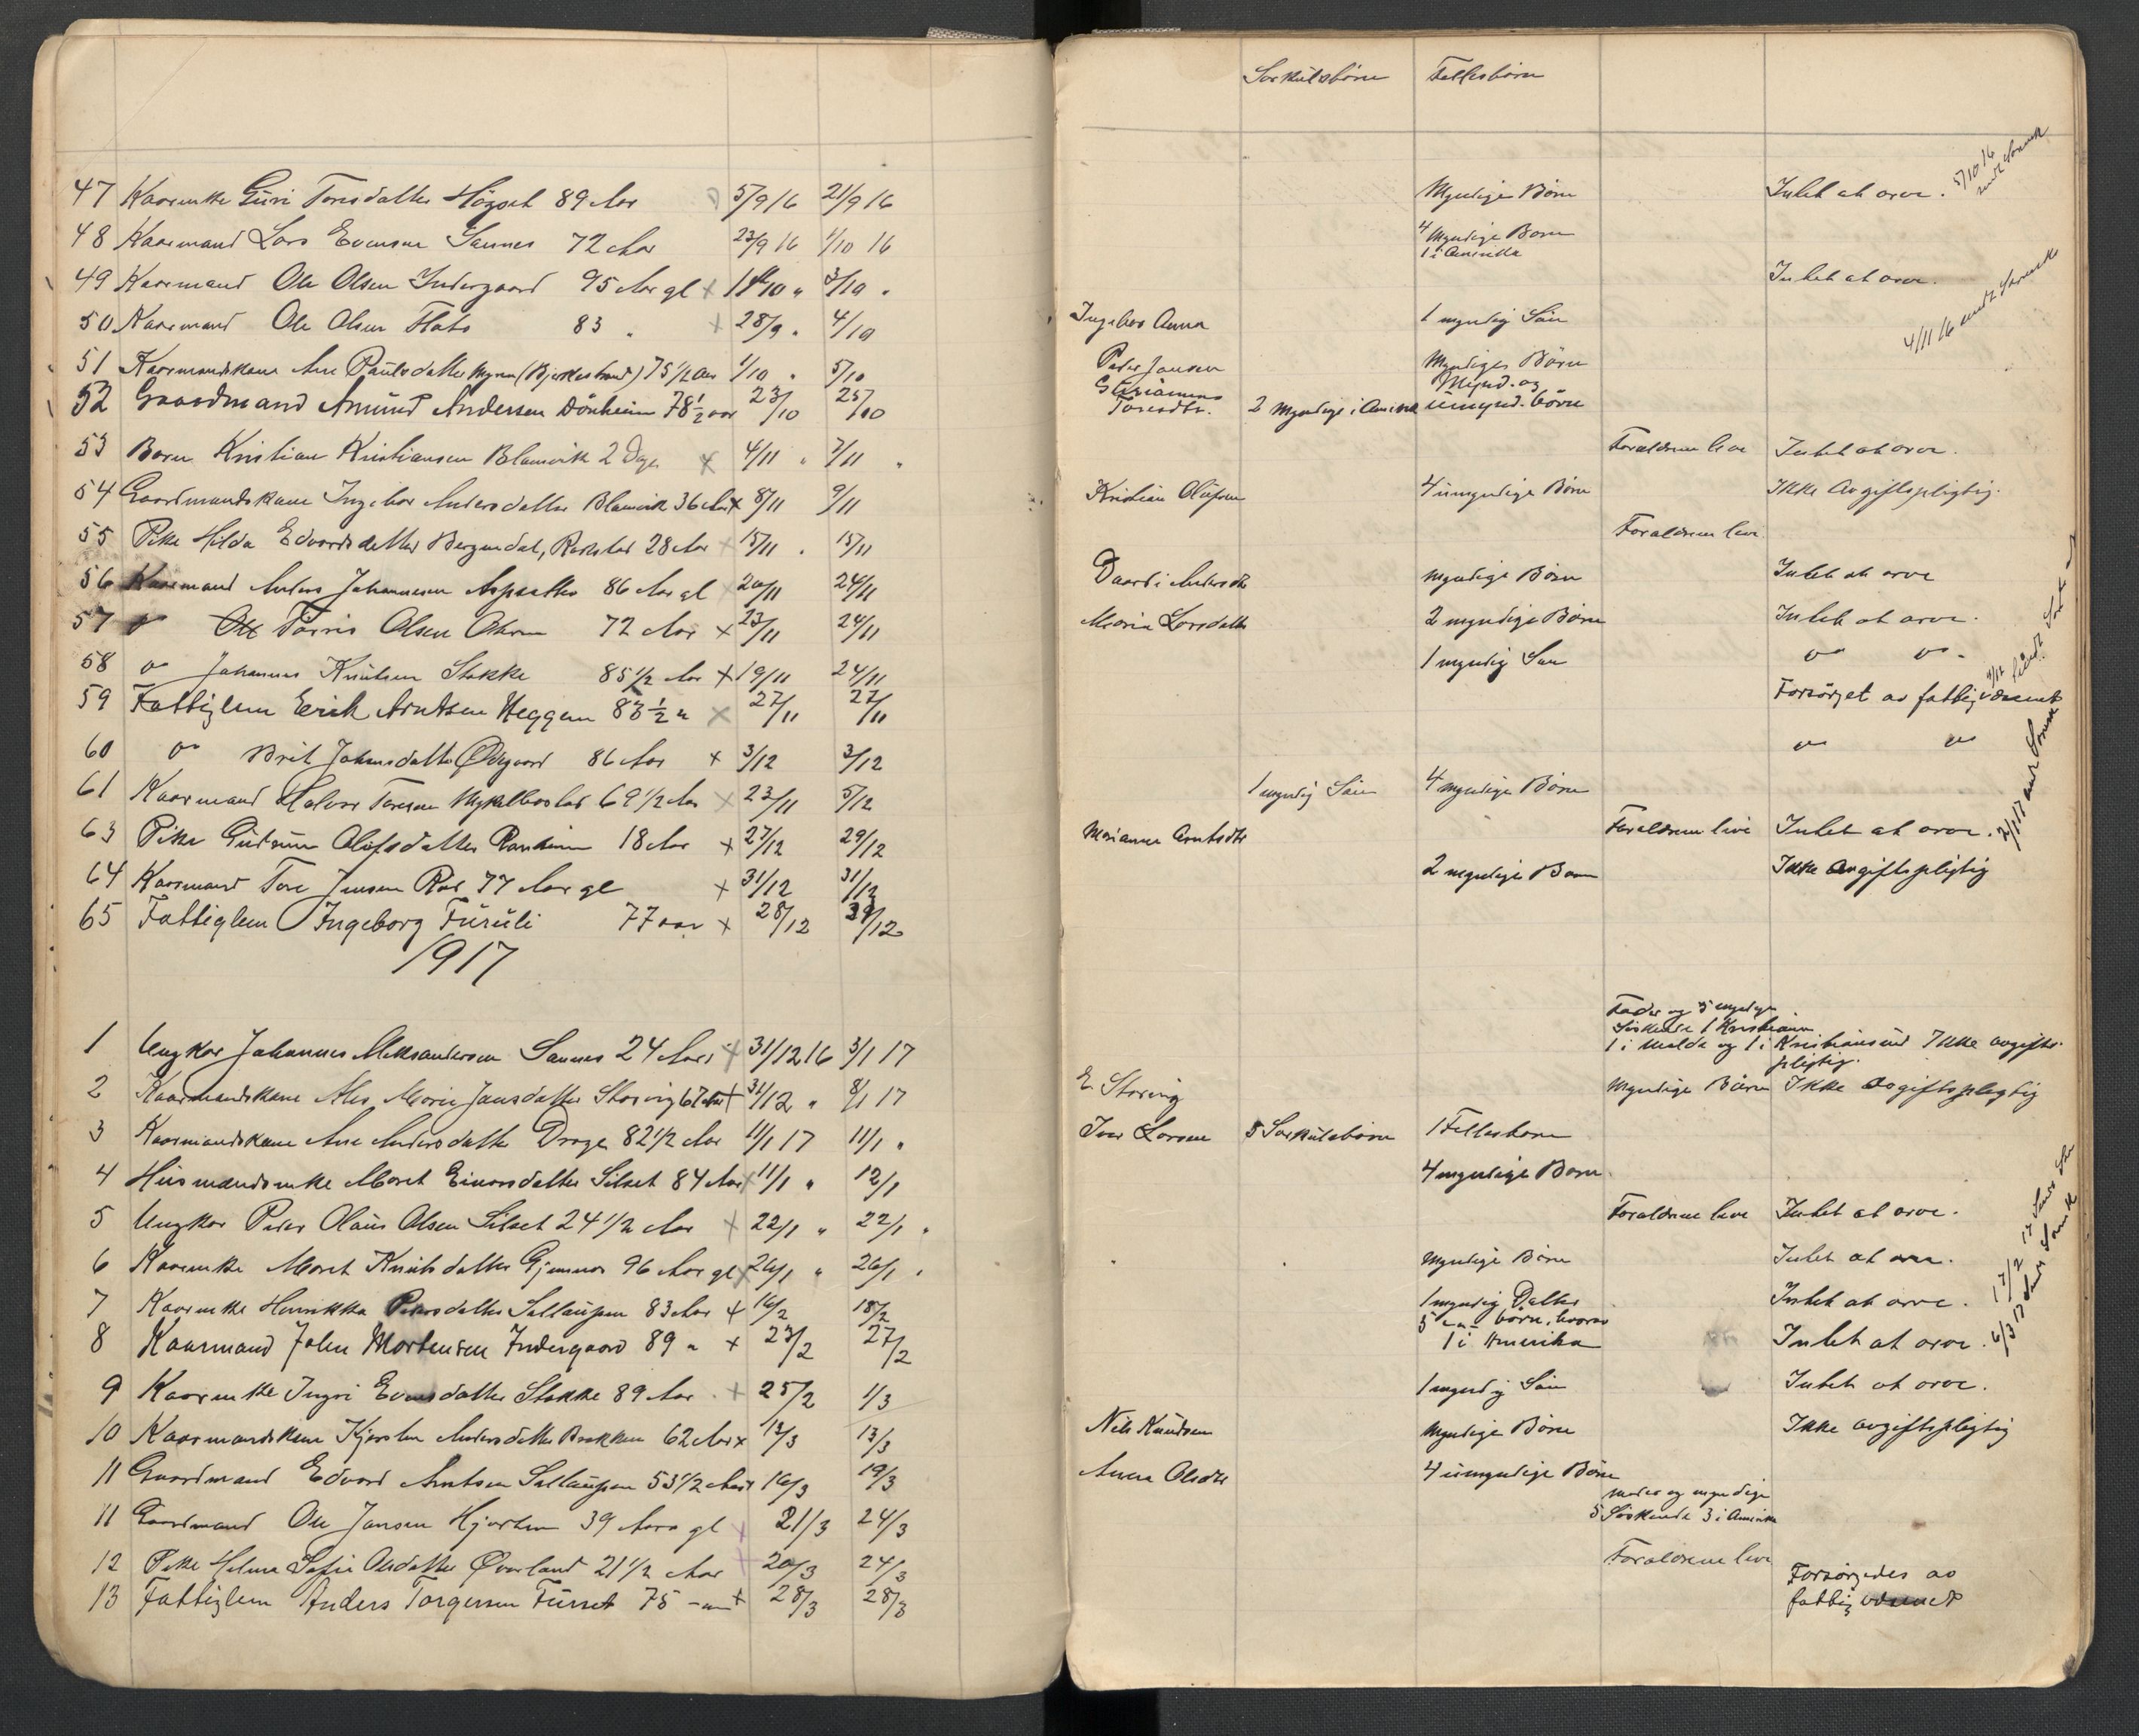 Særkulsbörn Fellesbörn
47 Kaarenke Guri Toresdatter Högset 89 Aar 5/9 16 21/9 16 Myndige Börn Intet at arve. 5/10 16
48 Kaarmand Lars Evensen Sannes 72 Aar 23/9 16 1/10 16 4 Myndige Born
1 i Amerika
49 Kaarmand Ole Olsen Indergaard 95 Aar gl x 1/10 " 3/10 " Intet at arve.
50 Kaarmand Ole Olsen Flato 83 " x 28/9 " 4/10 Ingebor Anna 1 myndig Sön 4/11 16
51 Kaarmandskone Ane Paulsdatter Myren (Bjerkestrand) 75 1/2 Aar 1/10 " 5/10 Peder Jansen Myndiges Börn
52 Gaardmand Amund Andersen Dönheim 78 1/2 aar 23/10 25/10 Toresdtr. 2 Myndige i Amerika Mynd. og umynd. börn
53 Barn Kristian Kristiansen Blamvik 2 Dage x 4/11 " 7/11 " Foraldrene leve Intet at arve.
54 Gaardmandskone Ingebor Andersdatter Blamvik 36 Aar x 8/11 9/11 Kristian Olufsen 4 umyndige Börn Ikke Avgiftspligtig.
55 Pike Hilda Edvardsdatter Bergmdal, 28 Aar x 15/11 . 15/11 Foraldrene leve.
56 Kaarmand Anders Johannesen Aspaas 86 Aar gl x 20/11 24/11 Andersdtr myndige Börn Intet at arve
57 " Torris Olsen 72 Aar x 23/11 24/11 Maria Larsdatter 2 myndige Börn Intet at arve.
58 " Johannes Knutsen Stokke 85 1/2 Aar x 19/11 24/11 1 myndig Sön " "
59 Fattiglem Erik Arntsen Heggem 83 1/2 " x 27/11 27/11 Forsörget av fattigvæsenet
60 " Brit Johansdatter Ødegaard 86 Aar x 3/12 3/12 " "
61 Kaarmand Halvor Toresen Mykelbostad 69 1/2 Aar x 23/11 5/12 1 myndig Sön 4 myndige Börn
63 Pike Gudrun Olufsdatter Ranheim 18 Aar x 27/12 29/12 Marianne Arntsdtr Foraldrene leve Intet at arve.
64 Kaarmand Tore Jensen Rød 77 Aar gl x 31/12 31/12 2 myndige Barn Ikke avgiftspligtig
65 Fattiglem Ingeborg Furuli 77 aar x 28/12 29/12
1917
Fader og 5 myndige
Söskende 1 Kristiania
1 Ungkar Johannes Aleksandersen Sannes 24 Aar x 31/12 16 3/1 17 1 i Molde og 1 i Kristiansund Ikke avgifts-
pligtig.
2 Kaarmandskone Ales Marie Jansdatter Storvig 67 Aar x 31/12 " 8/1 17 E. Storvig Myndige Börn Ikke avgiftspligtig
3 Kaarmandskone Ane Andersdatter Drage 82 1/2 Aar 11/1 17 11/1 " Iver Larsen 5 Særkulsbörn 1 Fellesbarn
4 Husmandsenke Maret Einarsdatter Silset 84 Aar x 11/1 " 12/1 4 myndige Born
5 Ungkar Peder Olaus Olsen Silset 24 1/2 Aar x 22/1 " 22/1 " Foraldrene leve Intet at arve.
6 Kaarenke Maret Knutsdatter Gjemnes 96 Aar gl x 26/1 " 26/1 " myndige Börn Intet at arve.
7 Kaarenke Henrikka Petersdatter Sollaupen 83 Aar x 16/2 18/2 1 myndig Datter Intet at arve.
5 " börn, hvorav
8 Kaarmand John Mortensen Indergaard 89 " x 23/2 27/2 1 i Amerika Intet at arve.
9 Kaarenke Ingri Evensdatter Stokke 89 Aar x 25/2 1/3 1 myndig Sön Intet at arve.
10 Kaarmandskone Kjersten Andersdatter Brekken 62 Aar x 13/3 13/3 Nels Knudsen Myndige Börn Ikke avgiftspligtig
11 Gaardmand Edvard Arntsen Sollaupen 53 1/2 Aar x 16/3 19/3 Anna Olsdtr 4 umyndige Börn
moder og myndige
11 Gaardmand Ole Jansen Hjorten 39 Aar gl x 21/3 24/3 5 Söskende 3 i Amerika
12 Pike Helma Sofie Olsdatter Øverland 21 1/2 Aar x 20/3 24/3 Foraldrene leve
13 Fattiglem Anders Torgersen Furset 75 x 28/3 28/3 Forsörgedes av
fattigvæsenet